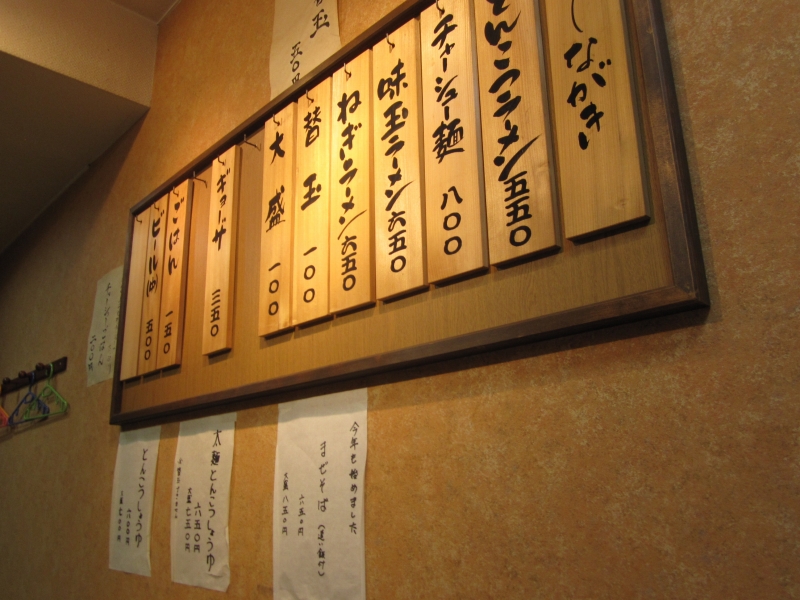 しながき
とんこつラーメン 五五〇
チャーシュー麺 八〇〇
味玉ラーメン 六五〇
ねぎいラーメン 六五〇
替玉 一〇〇
大盛 一〇〇
ギョーザ 三五〇
ごはん 一五〇
ビール(中) 五〇〇
玉
五〇円
今年も始めました
まぜそば
六五〇円
大盛 八五〇円
太麺とんこつしょうゆ
六五〇円
大盛 七五〇円
とんこつしょうゆ
六〇〇円